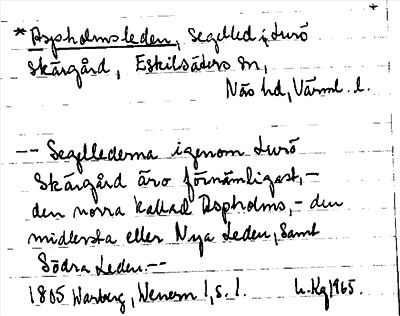 * Aspholmsleden, segelled i Lurö
skärgård, Eskilsäters sn,
Näs hd, Värml. l.
-- Segellederna igenom Lurö
Skärgård äro förnämligast, –
den norra kallad Aspholms, – den
midlersta eller Nya Leden, samt
Södra Leden. --
1805 Warberg, Wenern 1, s. 1. L. Kg 1965.